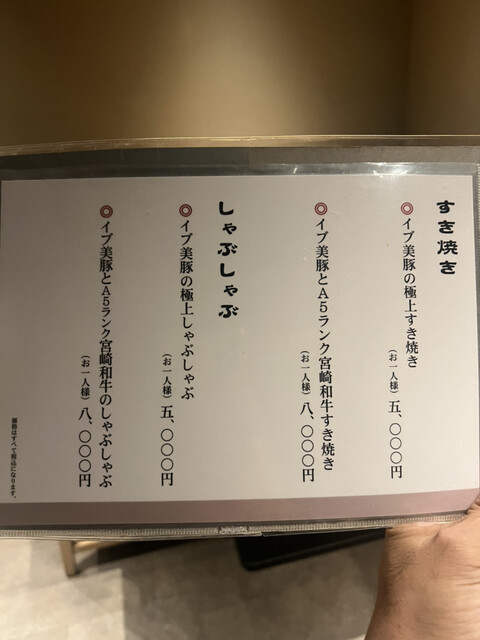 すき焼き
◎イブ美豚の極上すき焼き
(お一人様) 五、〇〇〇円
◎イブ美豚とA5ランク宮崎和牛すき焼き
(お一人様) 八、〇〇〇円
しゃぶしゃぶ
◎イブ美豚の極上しゃぶしゃぶ
(お一人様) 五、〇〇〇円
◎イブ美豚とA5ランク宮崎和牛のしゃぶしゃぶ
(お一人様) 八、〇〇〇円
価格はすべて税込になります。